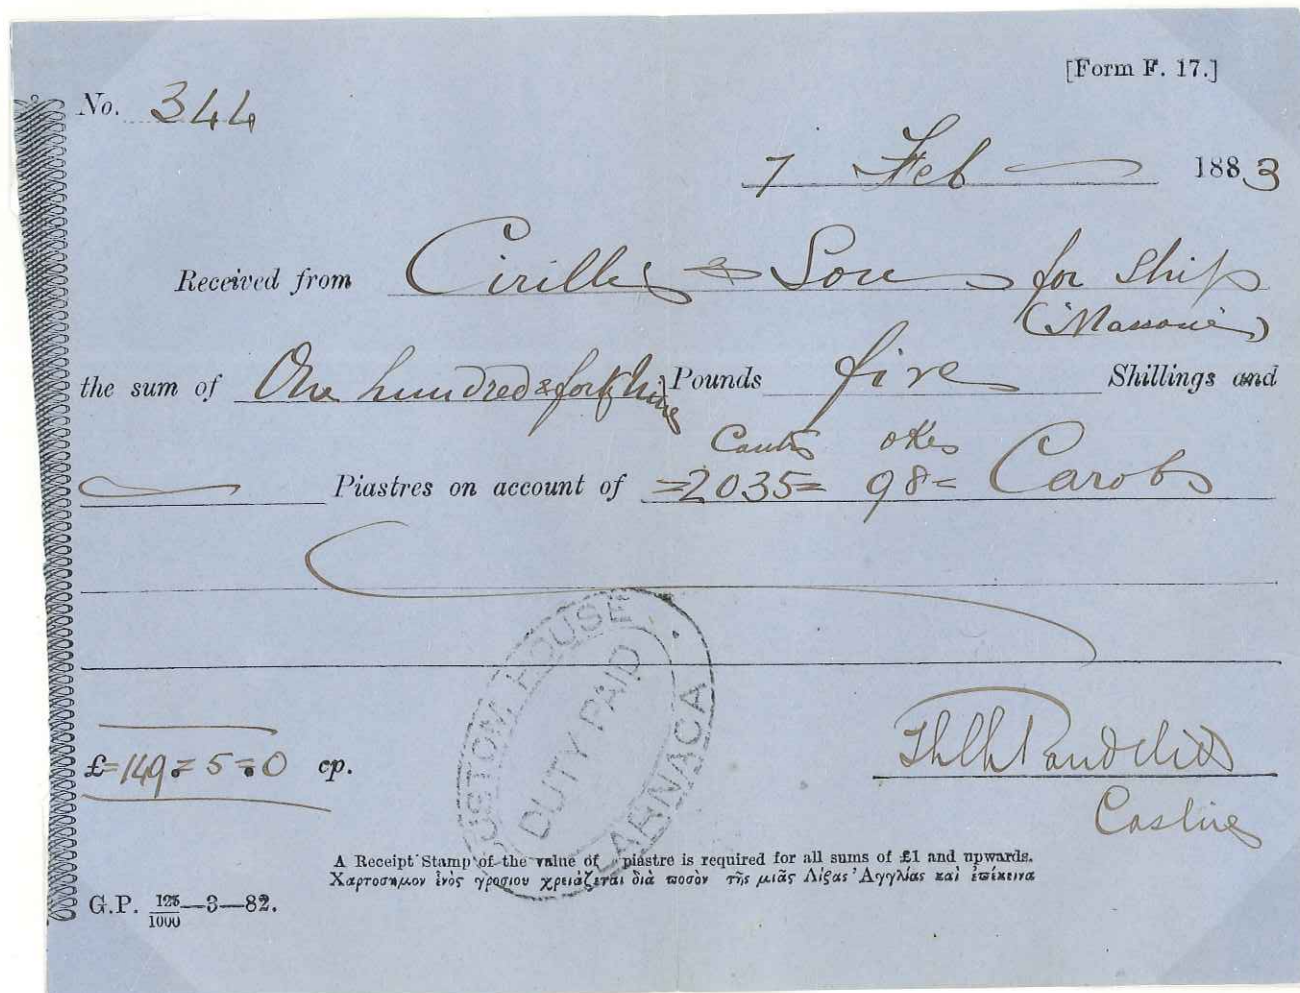 [Form F. 17.]
No. 344
7 Feb 1883
Received from Cirilli & Son for Ship
the sum of One hundred & forty nine Pounds five Shillings and
Cants okes
Piastres on account of =2035= 98= Carobs
CUSTOM HOUSE
DUTY PAID
LARNACA
£=149=5=0 cp.
A Receipt Stamp of the value of piastre is required for all sums of £1 and upwards.
Χαρτοσημον ἑνὸς γροσιου χρειάζεται διὰ ποσὸν τῆς μιᾶς Λίρας Ἀγγλίας καὶ ἐπέκεινα
G.P. 125/1000—3—82.